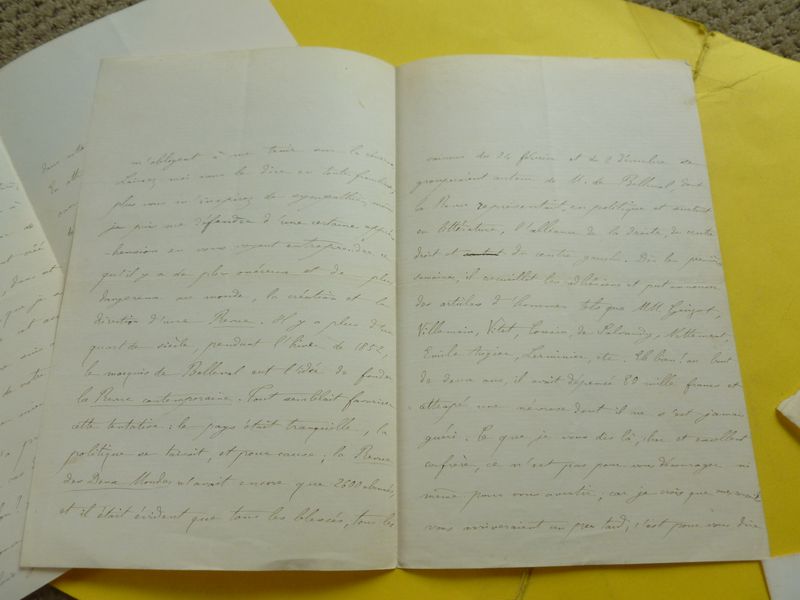 m'obligent à me tenir sur la réserve
Laissez-moi vous le dire en toute franchise,
plus vous m'inspirez de sympathie, moins
je puis me défendre d'une certaine appré-
hension en vous voyant entreprendre ce
qu'il y a de plus onéreux et de plus
dangereux au monde, la création et la
direction d'une Revue. Il y a plus d'un
quart de siècle, pendant l'hiver de 1852,
le marquis de Belleval eut l'idée de fonder
la Revue contemporaine. Tout semblait favoriser
cette tentative: le pays était tranquille, la
politique se taisait, et pour cause; la Revue
des Deux Mondes n'avait encore que 2600 abonnés,
et il était évident que tous les blessés, tous les
vaincus du 24 février et du 2 décembre se
grouperaient autour de M. de Belleval dont
la Revue représentait, en politique et surtout
en littérature, l'alliance de la droite, du centre
droit et du centre gauche. Dès les premières
semaines, il recueillit les adhésions et put annoncer
des articles d'hommes tels que MM. Guizot,
Villemain, Vitet, Cousin, de Salvandy, Nettement,
Emile Augier, Lerminier, etc. Eh bien! au bout
de deux ans, il avait dépensé 80 mille francs et
attrapé une névrose dont il ne s'est jamais
guéri. Ce que je vous dis là, cher et excellent
confrère, ce n'est pas pour vous décourager ni
même pour vous avertir; car je crois que mes avis
vous arriveraient un peu tard; c'est pour vous dire